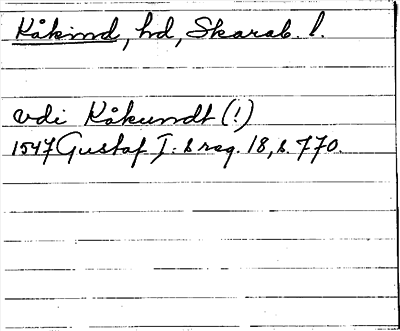 Kåkind, hd, Skarab. l.
vdi Kåkundt (!)
1547 Gustaf I:s reg. 18, s. 770.